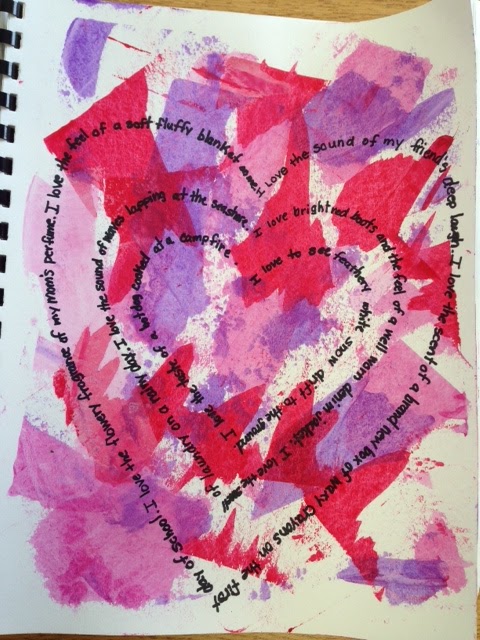 I love the sound of my fiend's deep laugh. I love the scent of a brand new box of waxy crayons on the first day of school. I love the flowery fragrance of my mom's perfume. I love the feel of a soft fluffy blanket
I love bright red boots and the feel of a well worn denim jacket. I love the smell of laundry on a rainy day. I love the sound of waves lapping at the seashore.
I love to see feathery white snow drift to the ground. I love the taste of a hotdog cooked at a campfire